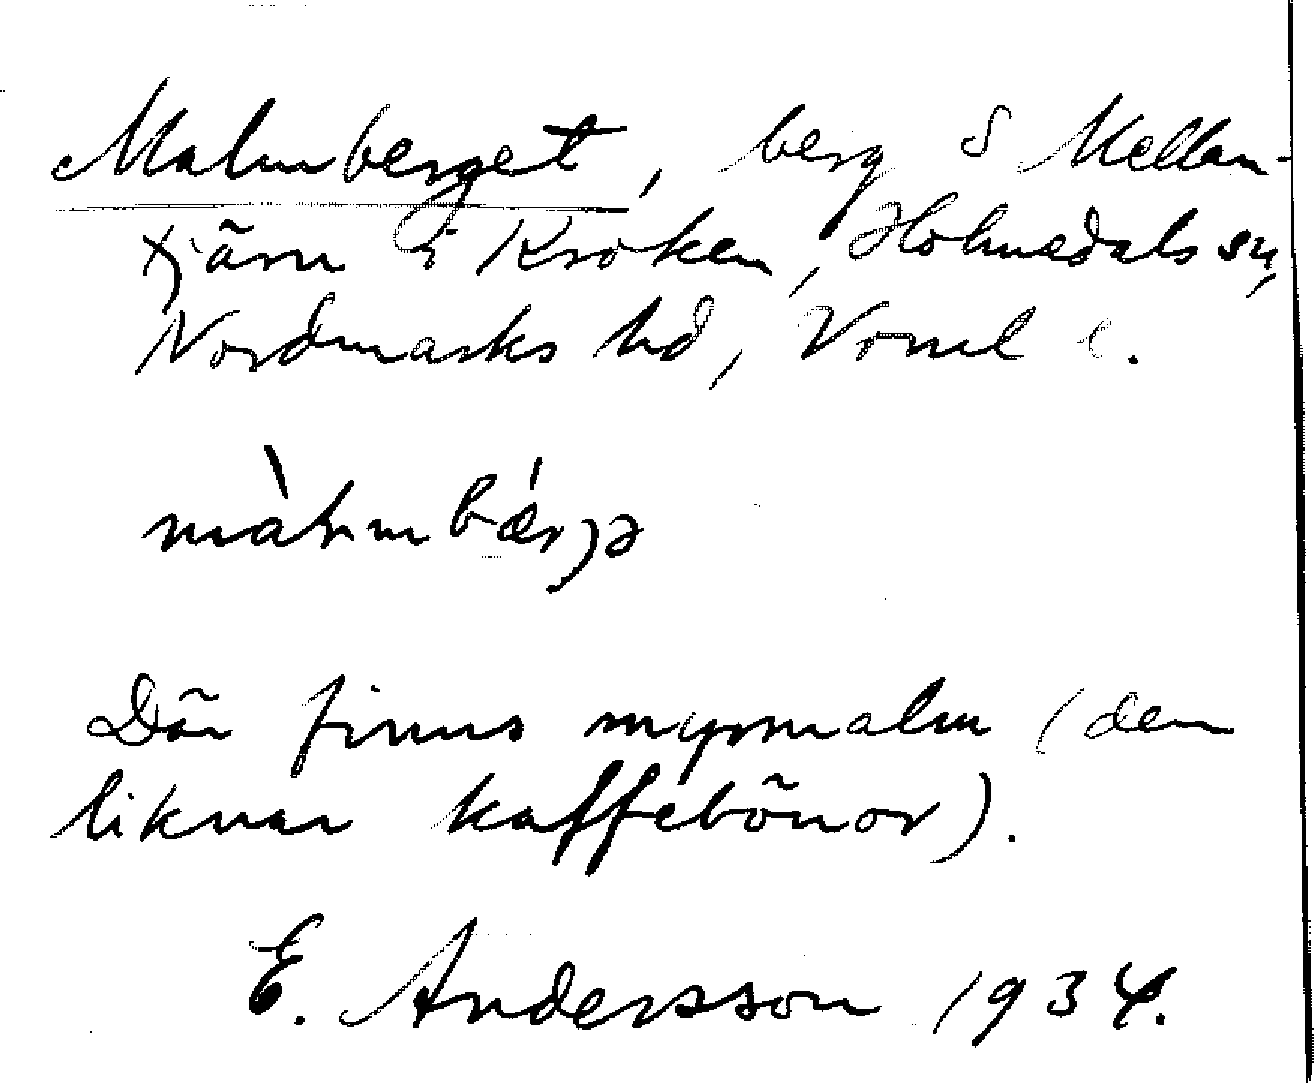 Malmberget, berg S Mellan-
tjärn i Kroken, Holmedals sn,
Nordmarks hd, Vrml l.
Där finns myrmalm (den
liknar kaffebönor).
E. Andersson 1934.